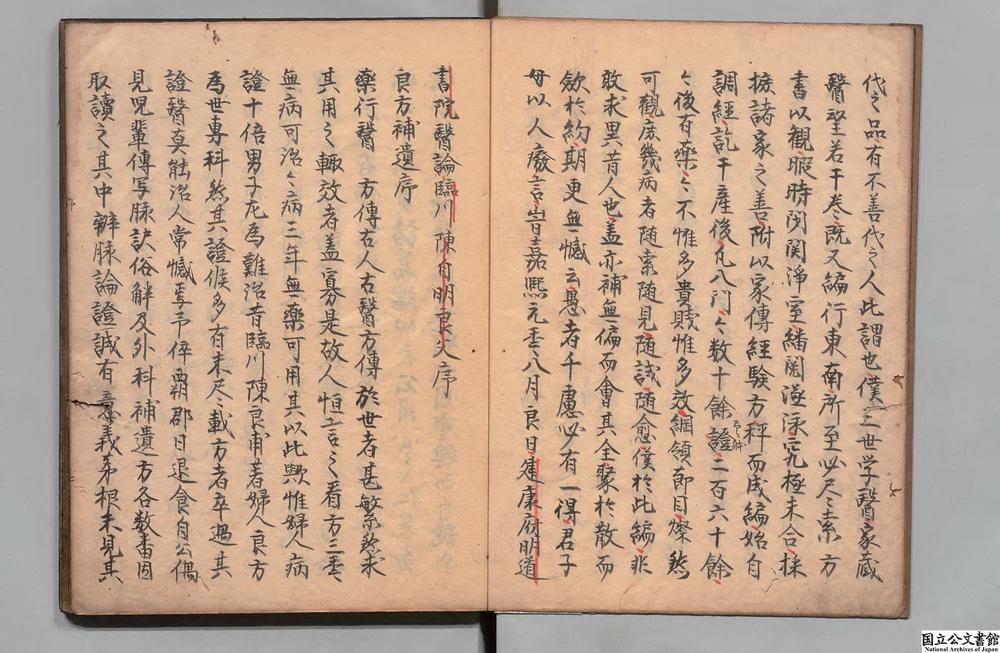 代之品有不善代之人此謂也僕三世学醫家藏
醫書若干卷既又編行東南所至必尽索方
書以観暇時閉関淨室繙閲涵泳究極未合採
摭諸家之善附以家傳經験方秤而成編始自
調經訖于産後凡八門門数十餘證二百六十餘
論後有薬薬不惟多貴賤惟多效綱領節目燦然
可観庶幾病者随索随見随試随愈僕於此編非
敢求異昔人也盖亦補無偏而會其全聚於散而
歛於約期更無憾云愚者千慮必有一得君子
毋以人廢言旹嘉熙元年八月良日建康府明道
書院醫論臨川陳自明良父序
良方補遺序
薬行醫方傳古人右醫方傳於世者甚繁然求
其用之輙效者盖寡是故人恒言之看方三年
無病可治治病三年無薬可用其以此歟惟婦人病
證十倍男子尤為難治昔臨川陳良甫著婦人良方
為世専科然其證候多有未尽載方者卒遇其
證醫莫能治人常憾焉予倅覇郡日退食自公偶
見児輩傳写脉訣俗解及外科補遺方各数書因
取讀之其中辨脉論證誠有意義第根未見其
国立公文書館
National Archives of Japan